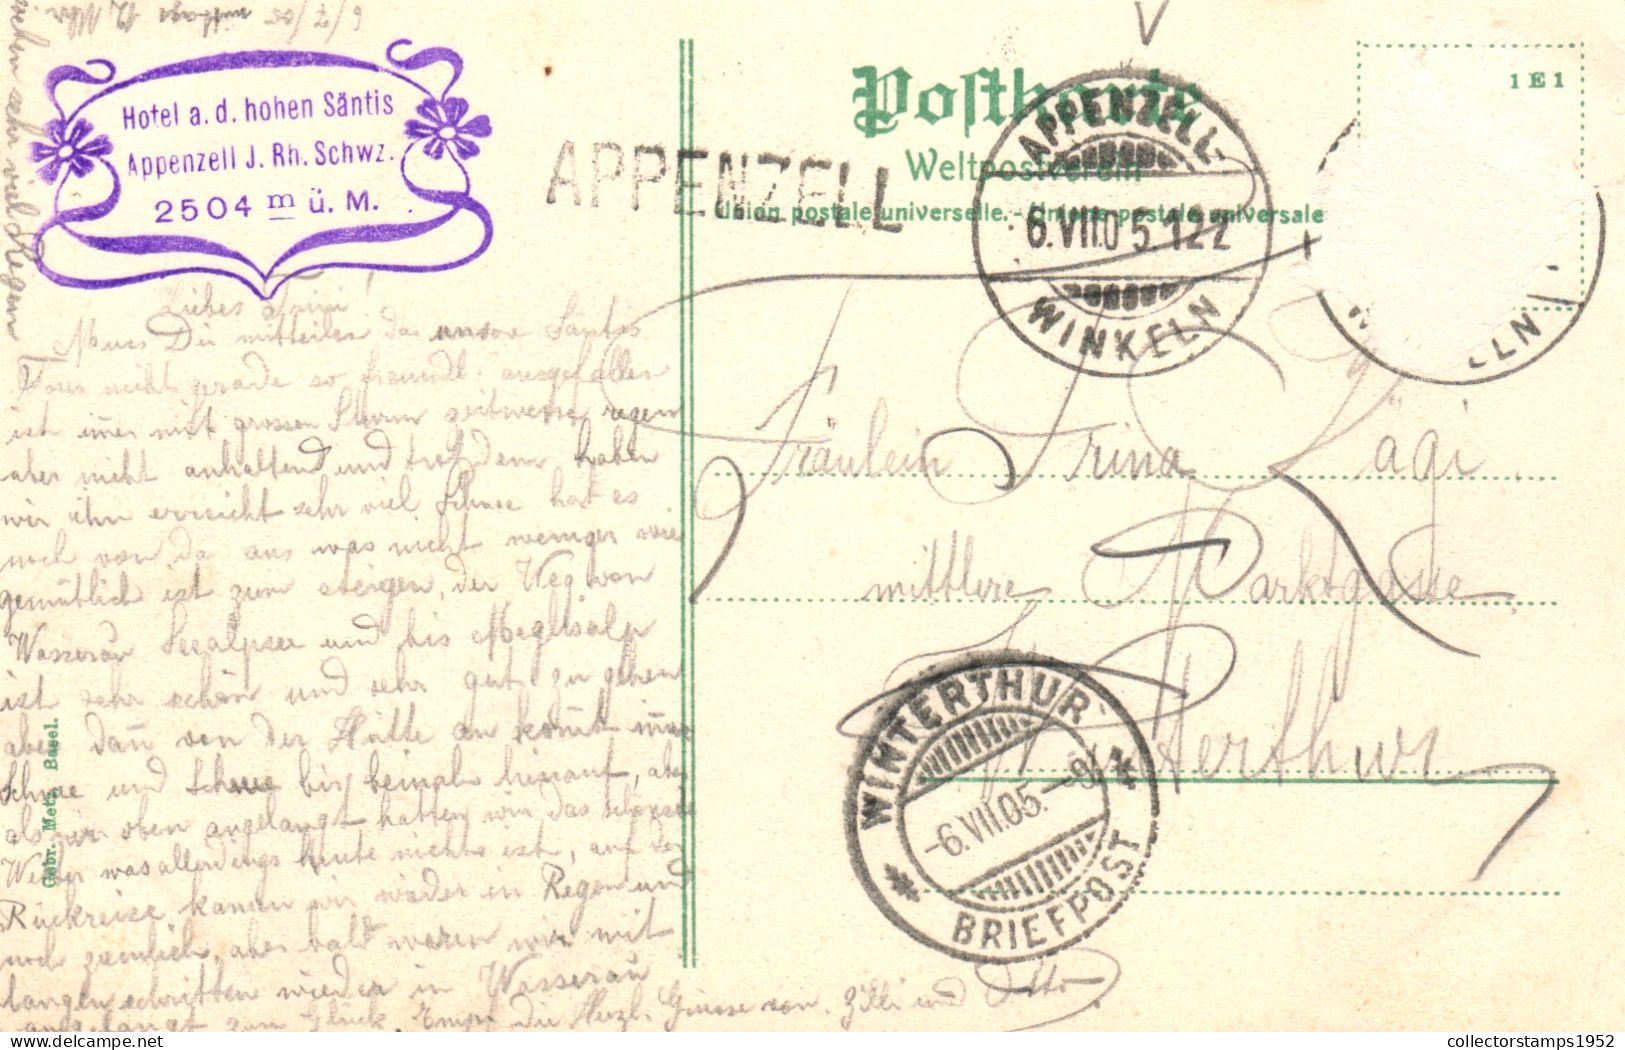 6/7/05 mittags 12 Uhr.
Hotel a. d. hohen Säntis
Appenzell J. Rh. Schwz.
2504 m ü. M.
APPENZELL
Postkarte
Weltpostverein
Union postale universelle. - Unione postale universale
1 E 1
APPENZELL-
6.VII.05.12Z
WINKELN
ELN
Liebes Trini!
Muss Dir mitteilen das unsere Säntis
Tour nicht gerade so freundl. ausgefallen
ist immer mit grossen Sturm zeitweise regen
aber nicht anhaltend und trotzdem haben
wir ihn erreicht sehr viel Schnee hat es
noch von da aus was nicht weniger wie
gemütlich ist zum steigen, der Weg von
Wasserau Seealpsee und bis Meglisalp
ist sehr schön und sehr gut zu gehen
aber dann von der Hütte an kommt immer
Schnee und Schnee bis hinauf, aber
als wir oben angelangt hatten wir das schönste
Wetter was allerdings heute nichts ist, auf der
Rückreise kamen wir wieder in Regen und
noch ziemlich, aber bald waren wir mit
langen schritten wieder in Wasserau
angelangt zum Glück. Empf. die Herzl. Grüsse von Zilli und Otto.
sehr viel Regen!
Fräulein Trina Kägi.
mittlere Marktgasse
Winterthur
WINTERTHUR
-6.VII.05.-9
BRIEFPOST
Gebr. Metz, Basel.
collectorstamps1952